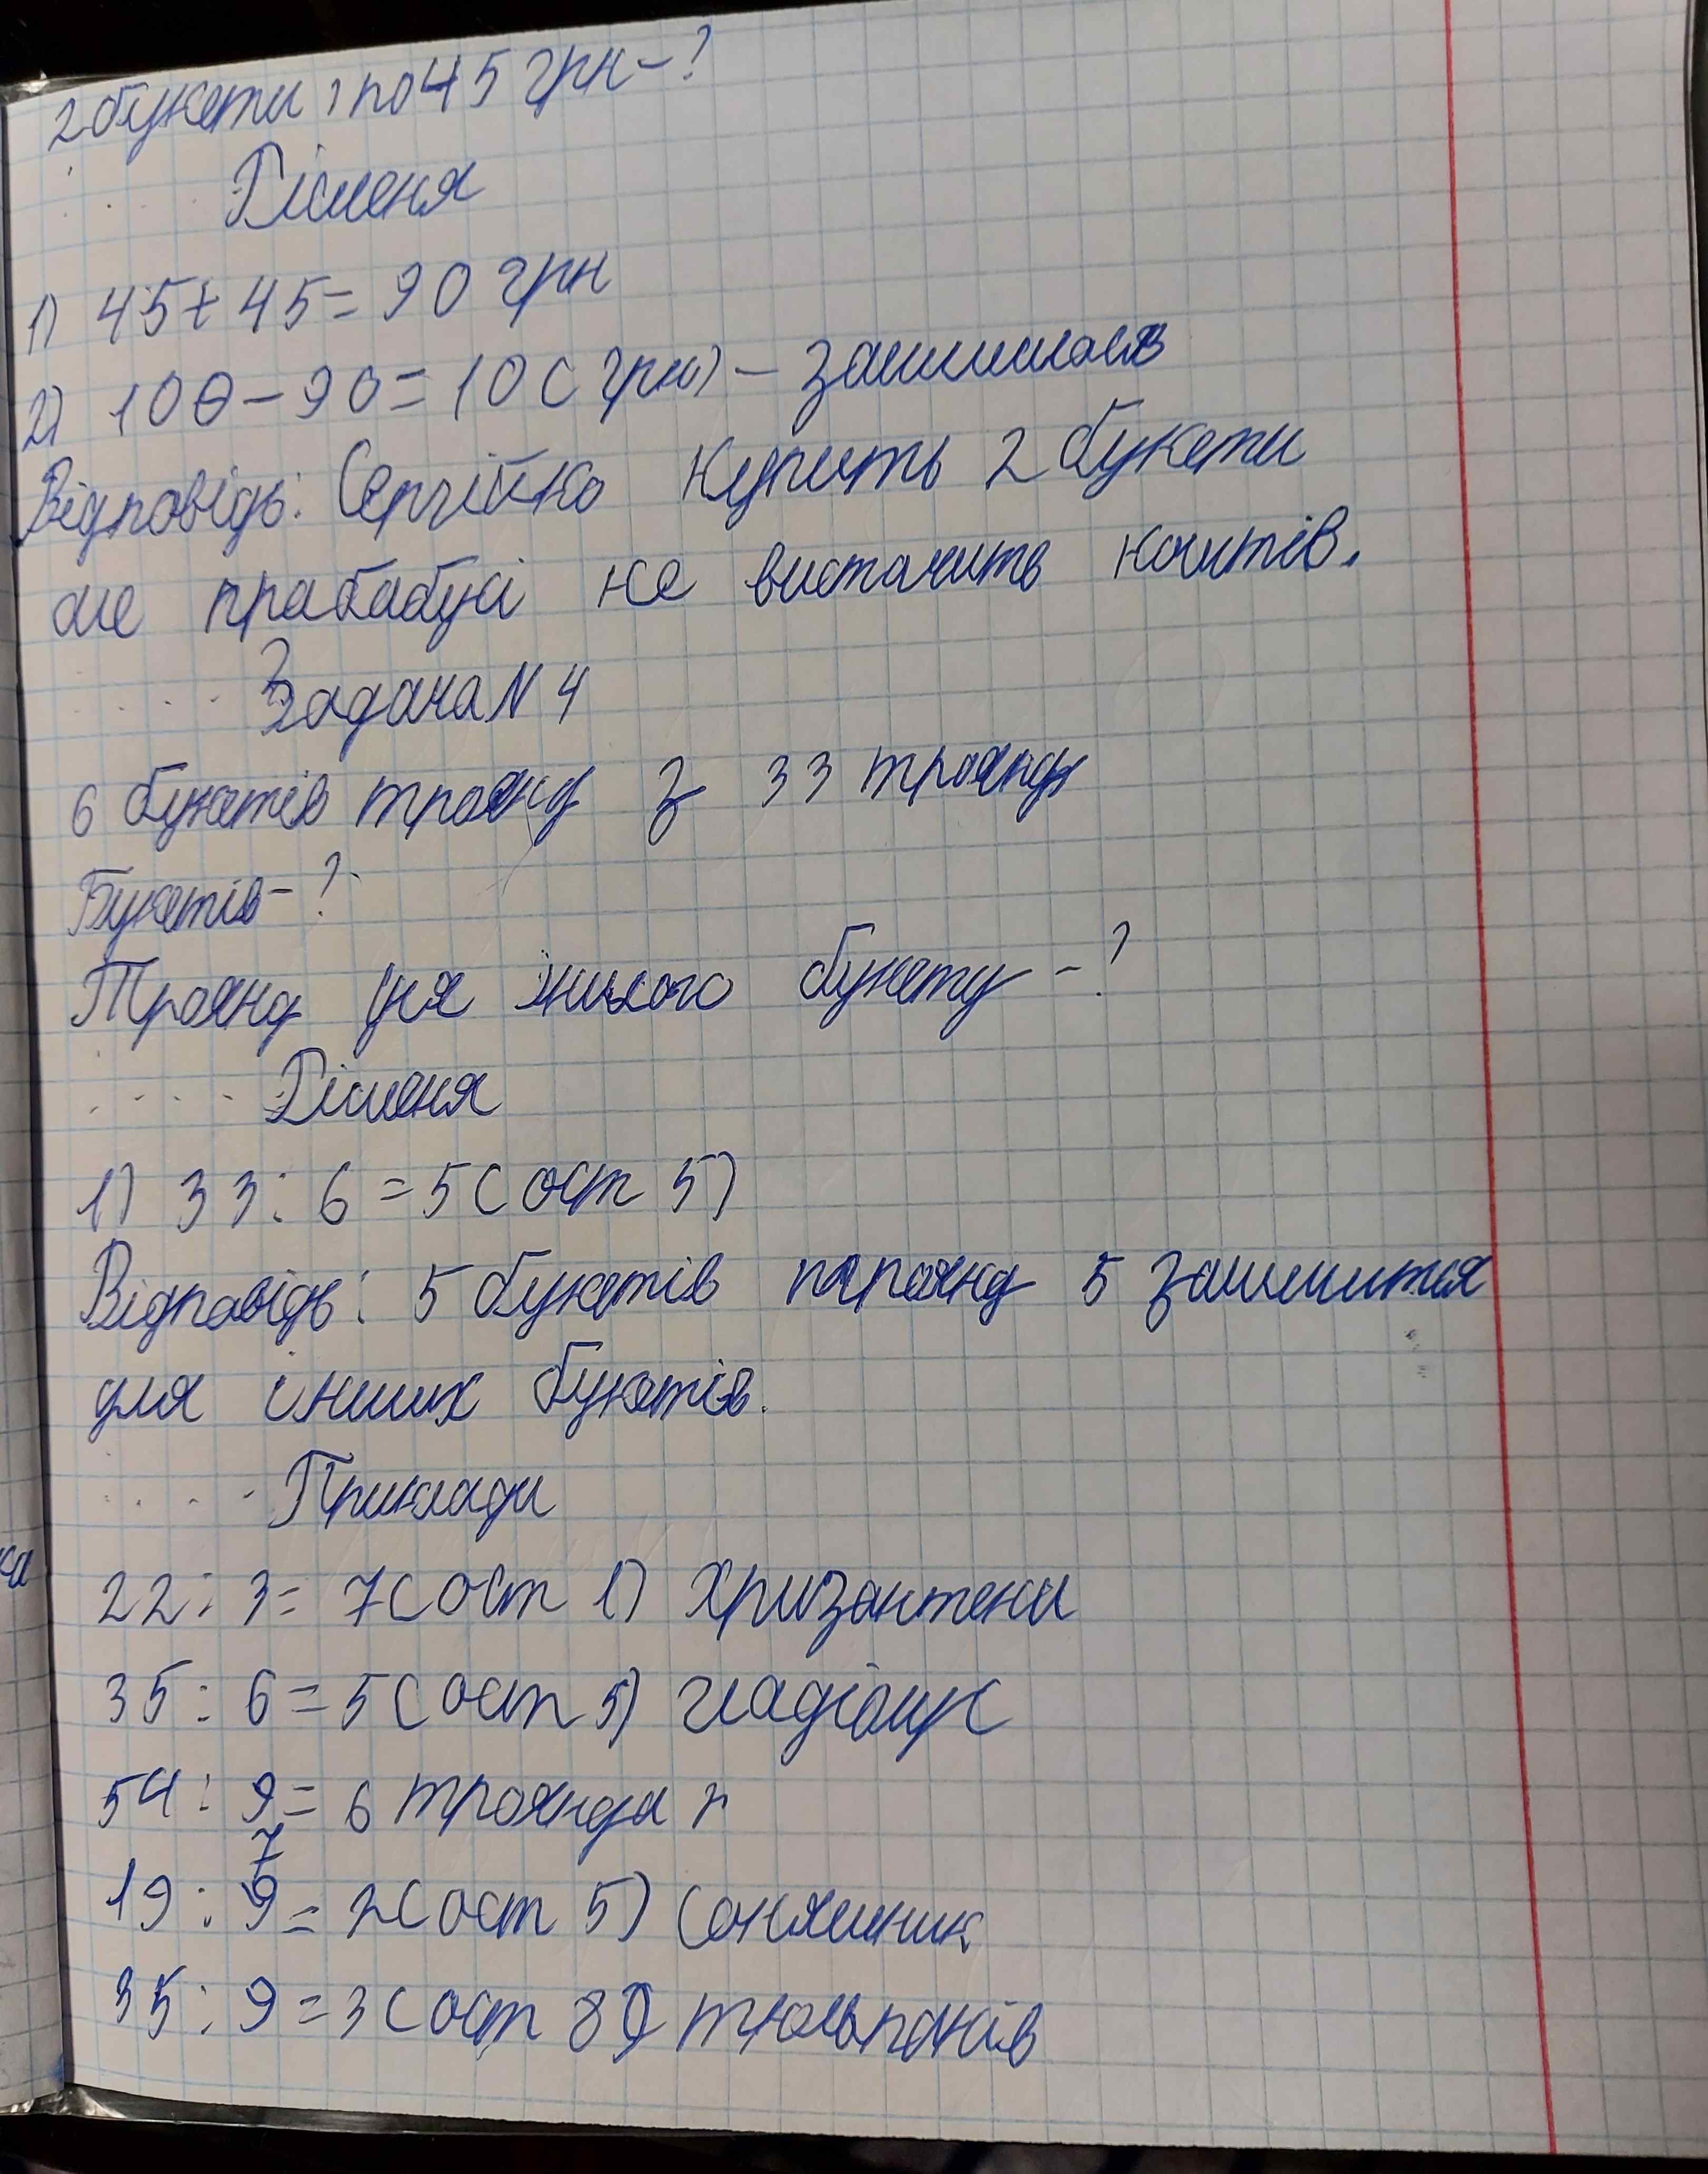 2 букети, по 45 грн-?
Рішеня
1) 45+45=90 грн
2) 100-90=10 (грн) - залишилося
Відповідь: Сергійко купить 2 букети
але прабабусі не вистачить коштів.
Задача N 4
6 букетів троянд з 33 троянд
Букетів-?
Троянд для іншого букету -?
Рішеня
1) 33:6=5(ост 5)
Відповідь: 5 букетів троянд 5 залишиться
для інших букетів.
Приклади
22:3=7(ост 1) хризантени
35:6=5(ост 5) гладіолус
54:9=6 троянда
7
19:9=2(ост 5) Соняшник
35:9=3(ост 8) тюльпанів